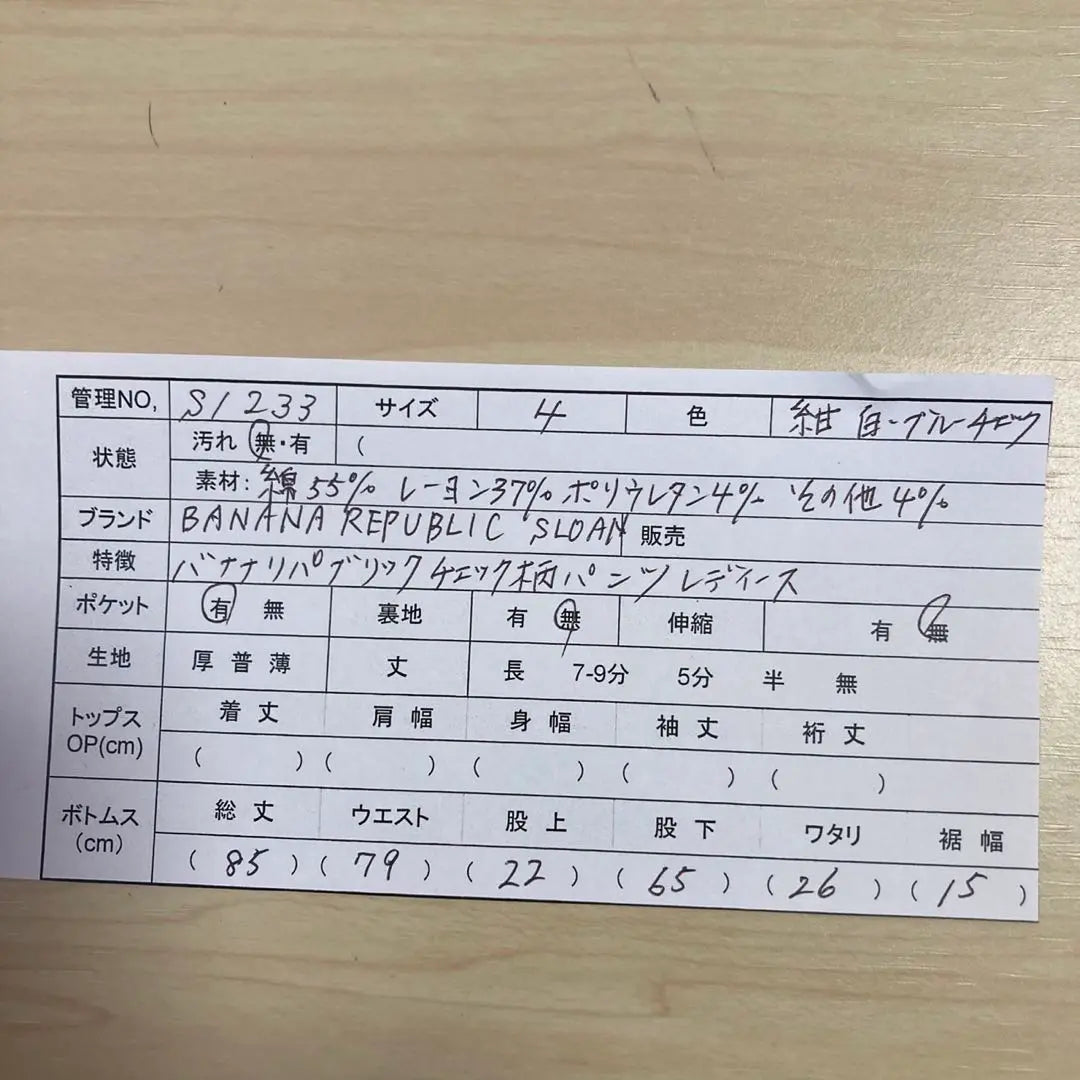 管理NO, S1233 サイズ 4 色 紺 白・ブルーチェック
状態 汚れ 無・有 (
素材: 綿55% レーヨン37% ポリウレタン4% その他4%
ブランド BANANA REPUBLIC SLOAN 販売
特徴 バナナリパブリックチェック柄パンツ レディース
ポケット 有 無 裏地 有 無 伸縮 有 無
生地 厚 普 薄 丈 長 7-9分 5分 半 無
トップス OP(cm) 着丈 肩幅 身幅 袖丈 裄丈
( ) ( ) ( ) ( ) ( )
ボトムス (cm) 総丈 ウエスト 股上 股下 ワタリ 裾幅
( 85 ) ( 79 ) ( 22 ) ( 65 ) ( 26 ) ( 15 )